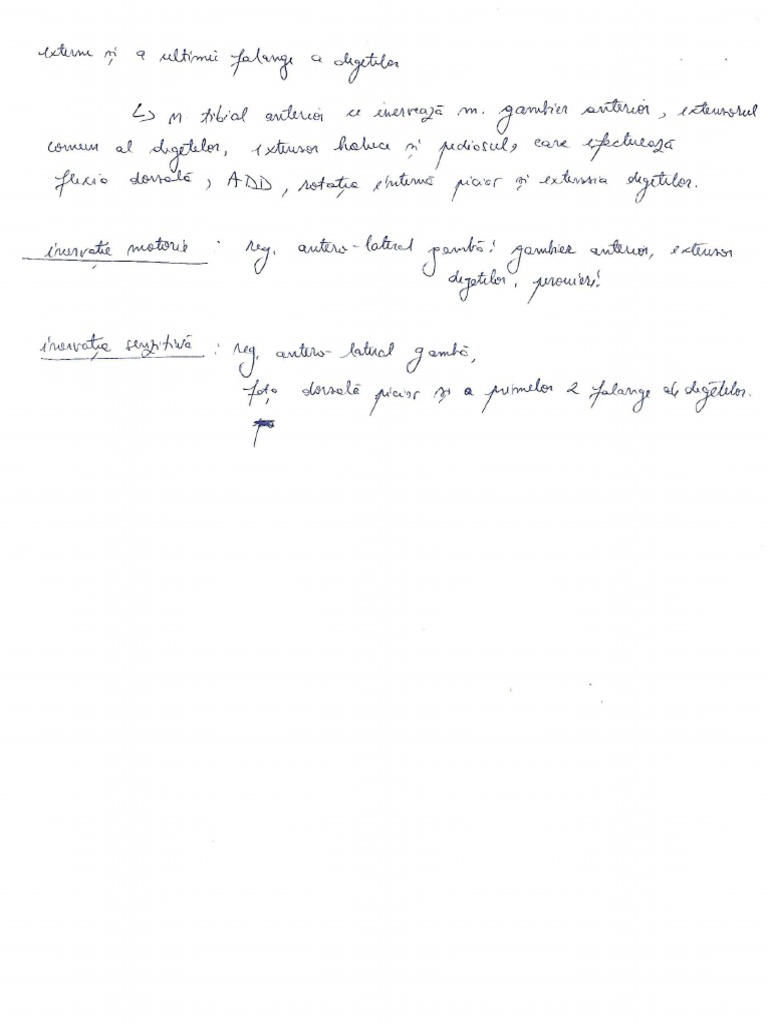 externe și a ultimei falange a degetelor
↳ n. tibial anterior ce inervează m. gambier anterior, extensorul
comun al degetelor, extensor haluce și pediosul, care efectuează
flexia dorsală, ADD, rotația internă picior și extensia degetelor.
inervație motorie : reg. antero-lateral gambă: gambier anterior, extensor
degetelor, peronieri!
inervația senzitivă : reg. antero-lateral gambă,
fața dorsală picior și a primelor 2 falange ale degetelor.